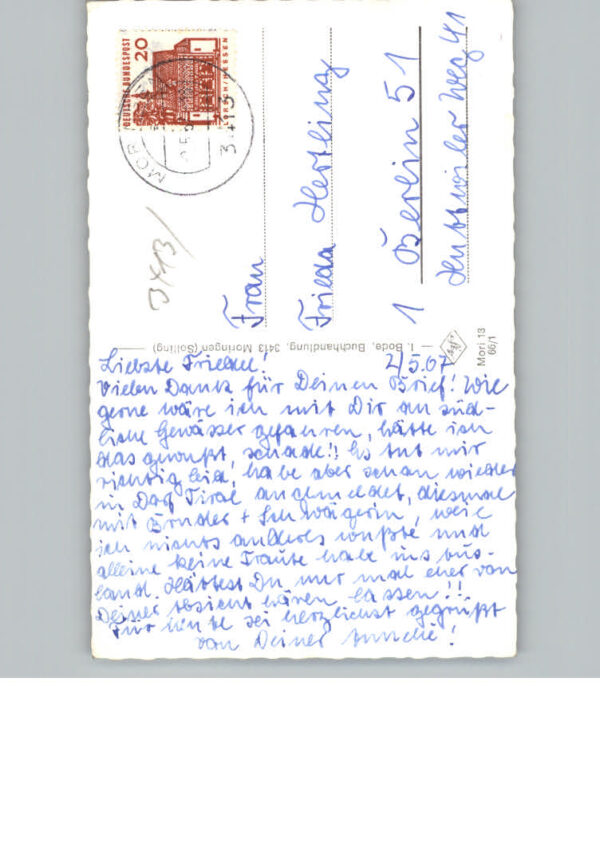 DEUTSCHE BUNDESPOST
20
LORSCH/HESSEN
3413
3413/
Frau
Frieda Hertling
1 Berlin 51
Weg 41
I. Bode, Buchhandlung, 3413 Moringen (Solling)
Mori 13
66/1
Liebste Friedel!
2/5.67
Vielen Dank für Deinen Brief! Wie
gerne wäre ich mit Dir an süd-
liche Gewässer gefahren, hätte ich
das gewußt, schade!! Es tut mir
richtig leid, habe aber schon wieder
in Dorf Tirol angemeldet, diesmal
mit Bruder + Schwägerin, weil
ich nichts anderes wußte und
alleine keine Traute habe ins Aus-
land. Hättest Du nur mal eher von
Deiner Absicht hören lassen!!
Für heute sei herzlichst gegrüßt
von Deiner